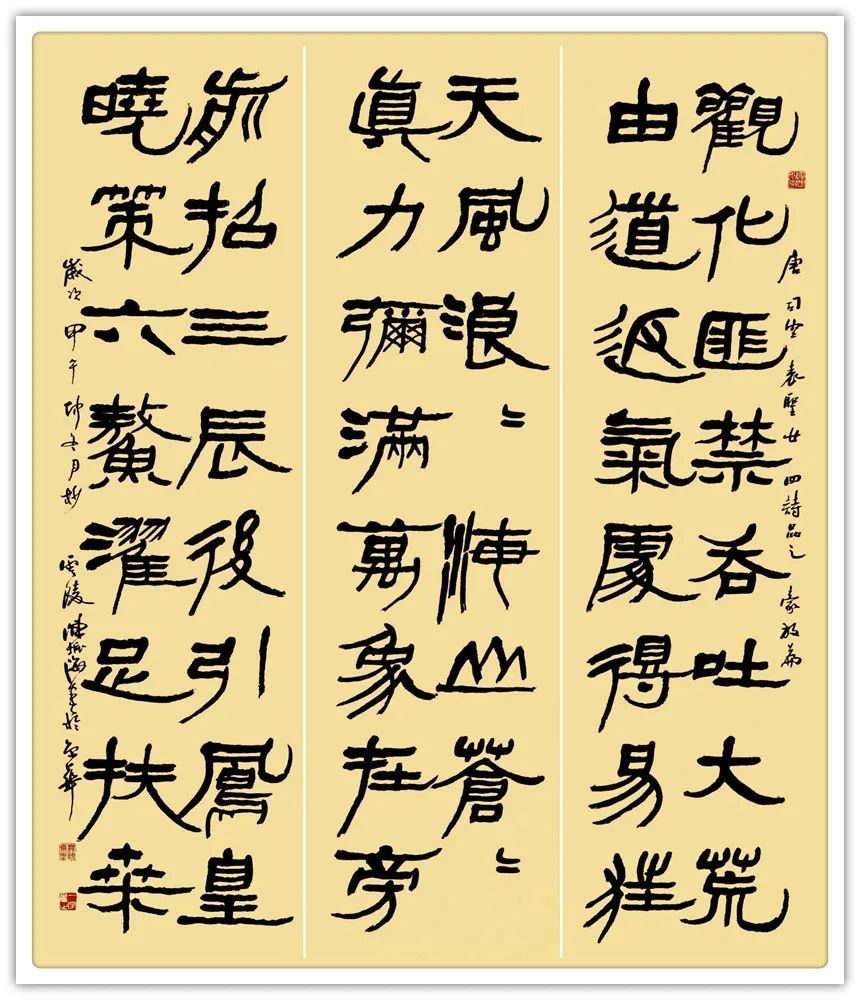 唐司空表聖廿四詩品之豪放篇
觀化匪禁吞吐大荒
由道返氣處得易狂
天風浪浪海山蒼蒼
眞力彌滿萬象在旁
前招三辰後引鳳皇
曉策六鰲濯足扶桑
歲次甲午仲冬月 雲陵 海書於京華